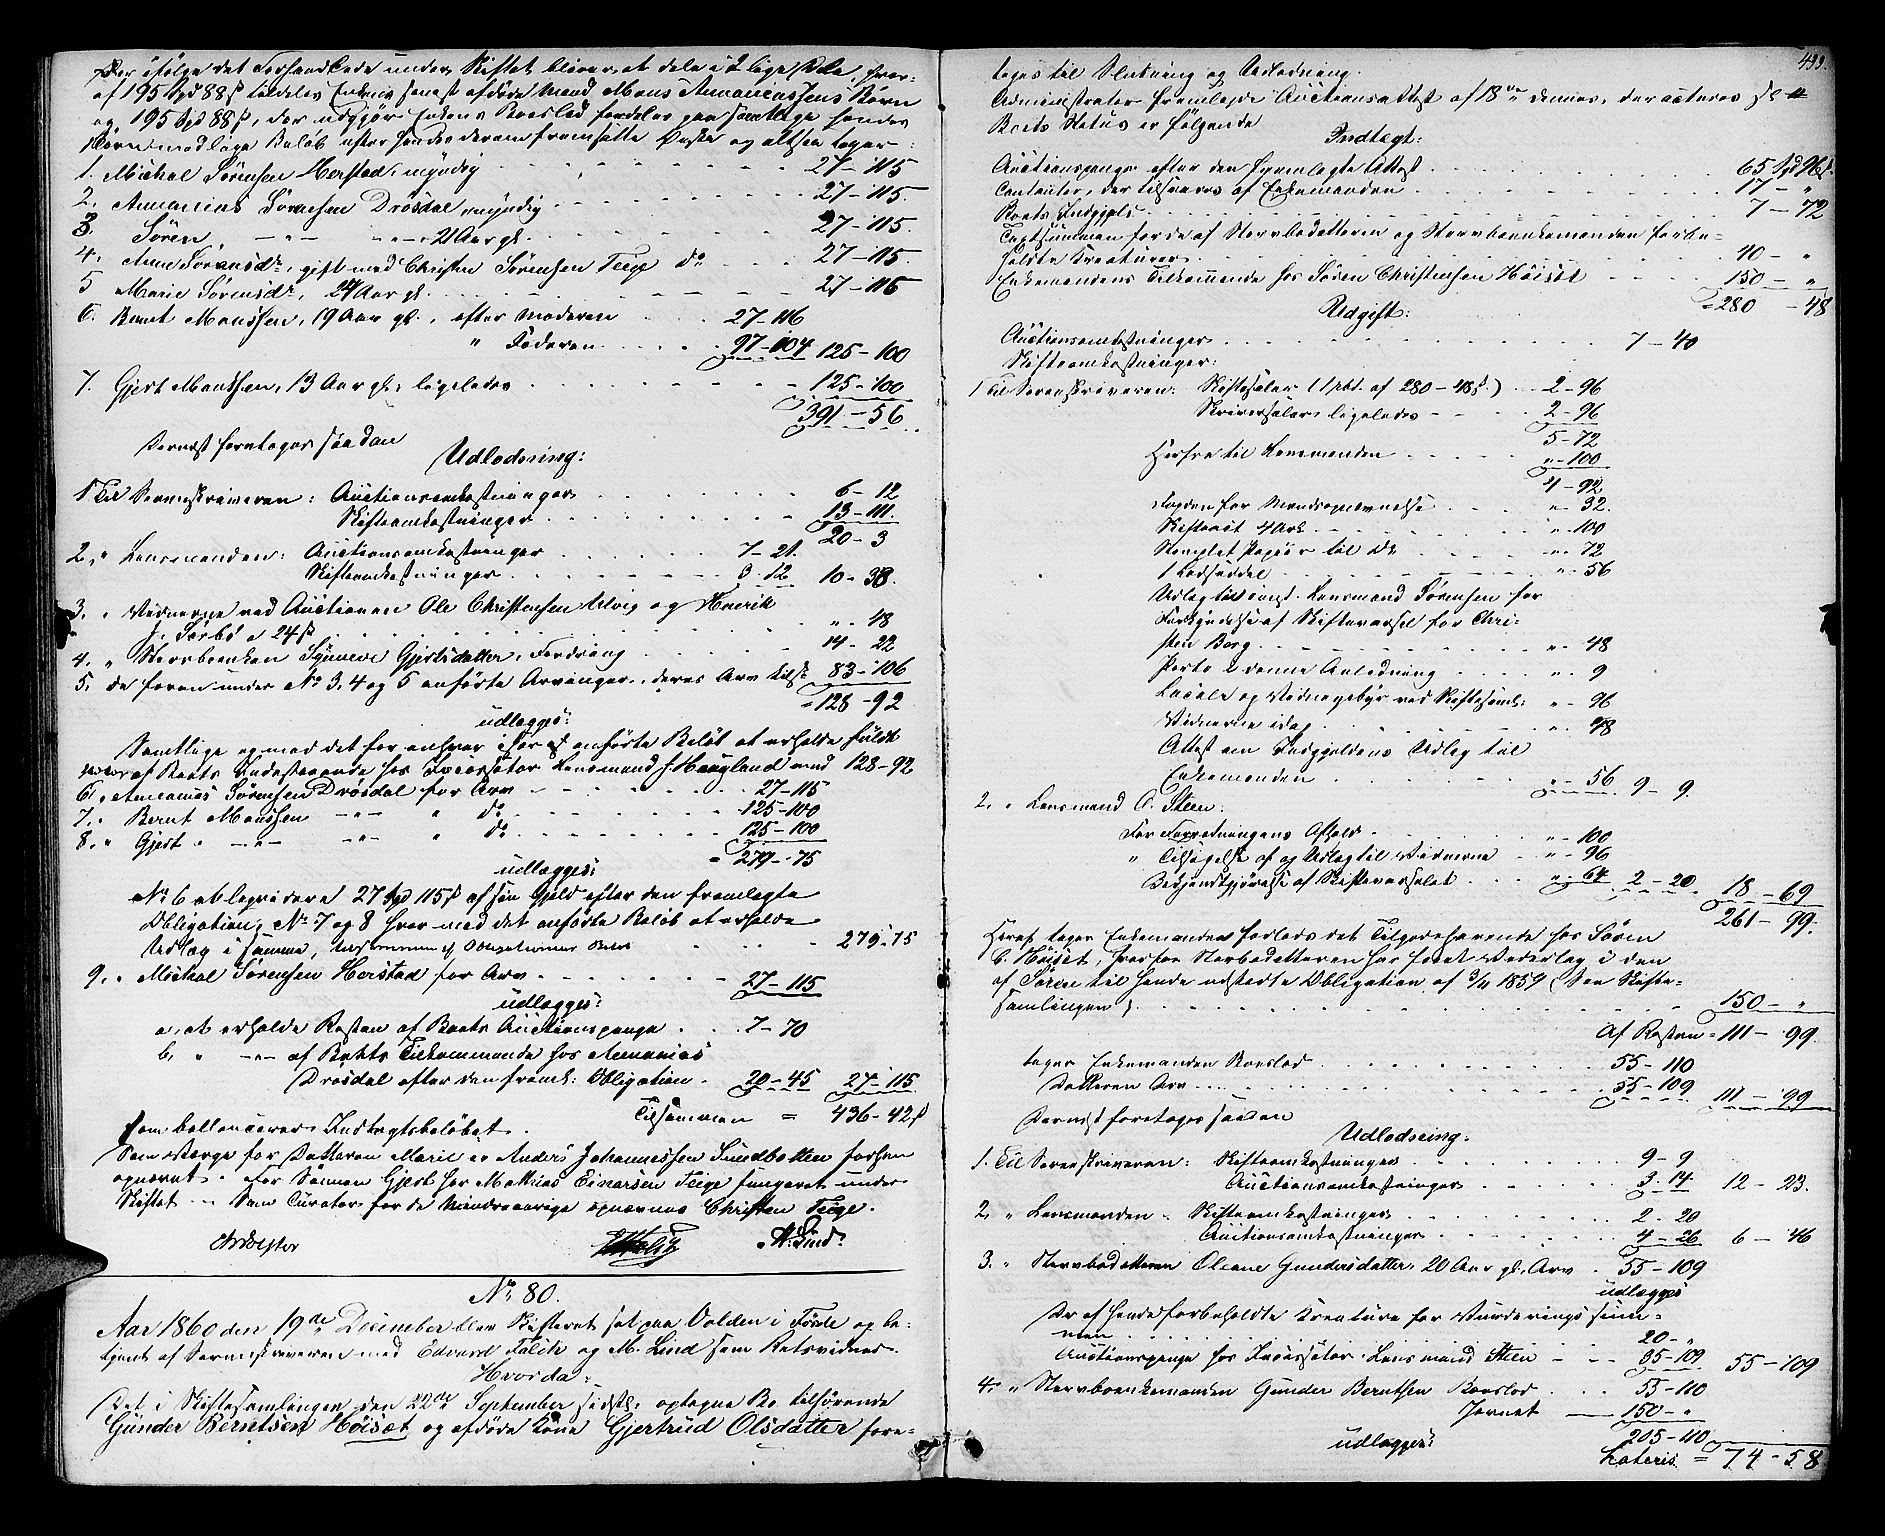 Der ifölge det Forhandlede under Skiftet bliver at dele i 2 lige Dele, hvor-
af 195 Spd 88 ß tildeles Enkens senest afdøde Mand Mons Annaniassens Børn
og 195 Spd 88 ß, der udgjør Enkens Boeslod fordeles paa samtlige hendes
Børn med lige Beløb efter hendes derom fremsatte Ønske og altsaa tager:
1. Michal Sørensen Herstad, myndig 27-115
2. Annanias Sørensen Drösdal, myndig 27-115.
3. Sören —"— —"— 21 Aar gl. 27-115.
4. Anne Sørensdr., gift med Christen Sörensen Teige do 27-115
5 Marie Sørensdr, 24 Aar gl. 27-115
6. Bernt Monssen, 19 Aar gl., efter Moderen 27-116
" Faderen 97-104 125-100
7. Gjert Monssen, 13 Aar gl. ligeledes 125-100
391-56
Dernæst foretoges saadan
Udlodning:
1 Til Sorenskriveren: Auctionsomkostninger 6-12
Skifteomkostninger 13-111.
20-3
2, " Lensmanden: Auctionsomkostninger 7-21.
Skifteomkostninger 3-12 10-38.
3. " Vidnerne ved Auctionen Ole Christensen Alvig og Henrik
J. Sørbö a 24 ß "-48
4. " Stervboenken Synneve Gjertsdatter, Fordring 14-22
5. de foran under No 3, 4 og 5 anførte Arvinger, deres Arv tils. 83-106
=128-92
udlægges:
Samtlige og med det for enhver især anførte Beløb at erholde fuldt
af Boets Indestaaende hos Incassator Lensmand J. Haugland med 128-92
6, " Annanias Sørensen Drösdal for Arv 27-115
7, " Bernt Monssen —"— " do 125-100
8, " Gjert " —"— —"— " do 125-100
= 279-75
udlægges:
No 6 at liqvidere 27 Spd 115 ß af sin Gjeld efter den fremlagte
Obligation, No 7 og 8 hver med det anførte Beløb at erholde
Udlæg i samme, 279-75
9. " Michal Sørensen Herstad for Arv 27-115
udlægges:
a, at erholde Resten af Boets Auctionspenge 7-70
b, " —"— af Boets Tilkommende hos Annanias
Drösdal efter den freml: Obligation. 20-45 27-115
Tilsammen = 436-42 ß
som ballancerer Indtægtsbeløbet.
Som Værge for Datteren Marie er Anders Johannessen Sundbotten forhen
opnævnt. For Sønnen Gjert har Mathias Einarsen Teige fungeret under
Skiftet. — Som Curator for de Mindreaarige opnævnes Christen Teige.
M. Lind.
No 80.
Aar 1860 den 19de December blev Skifteret sat paa Volden i Førde og be-
tjent af Sorenskriveren med Edvard Falch og M. Lind som Retsvidner.
Hvorda:
Det i Skiftesamlingen den 22de September sidstl. optagne Bo tilhørende
Gunder Berntsen Höiset og afdøde Kone Gjertrud Olsdatter fore-
499.
toges til Slutning og Udlodning.
Administrator fremlagde Auctionsattest af 18de dennes, der acteres sl.
Boets Status er følgende
Indtægt:
Auctionspenge efter den fremlagte Attest 65 Spd 96 ß.
Contanter, der tilsvares af Enkemanden 17-"
Boets Indgjeld 7-72
Taxtsummen for de af Stervbodatteren og Stervboenkemanden forbe-
holdte Creaturer 40-"
Enkemandens Tilkommende hos Sören Christensen Höiset 150-"
=280-48
Udgift:
Auctionsomkostninger 7-40
Skifteomkostninger:
1 Til Sorenskriveren: Skiftesalar (1 pct. af 280-48 ß) 2-96
Skriversalar ligeledes 2-96
5-72
Herfra til Lensmanden "-100
4-92
Fogden for Mandsopnævnelse "-32.
Skifteact 4 Ark "-100
Stemplet Papiir til do "-72
1 Lodseddel "-56
Udlæg til const. Lensmand Sørensen for
Forkyndelse af Skiftevarsel for Chri-
sten Berg "-48
Porto i denne Anledning "-9
Locale og Vidnegebyr ved Skiftesaml: "-96
Vidnerne idag "-48
Attest om Indgjeldens Udlæg til
Enkemanden "-56 9-9.
2. " Lensmand O. Steen:
For Forretningens Afhold "-100
" Tilsigelse af og Udlæg til Vidnerne "-96
Bekjendtgjørelse af Skiftevarselet "-64 2-20 18-69
261-99.
Heraf tager Enkemanden forlods det Tilgodehavende hos Sören
C. Höiset, hvorfor Stervbodatteren har faaet Vederlag i den
af Sören til hende udstedte Obligation af 3/11 1859 (see Skifte-
samlingen) 150-"
Af Resten=111-99.
tager Enkemanden Boeslod 55-110
Datteren Arv 55-109 111-99
Dernæst foretoges saadan
Udlodning:
1. Til Sorenskriveren: Skifteomkostninger 9-9
Auctionsomkostninger 3-14 12-23.
2, " Lensmanden " Skifteomkostninger 2-20
Auctionsomkostninger 4-26 6-46
3. " Stervbodatteren Oleane Gundersdatter, 20 Aar gl., Arv 55-109
udlægges
De af hende forbeholdte Creature for Vurderings sum-
men 20-"
Auctionspenge hos Incassator Lensmand Steen 35-109 55-109
4. " Stervboenkemanden Gunder Berntsen Boeslod 55-110
Forret 150-"
205-110
udlægges:
Lateris = 74-58